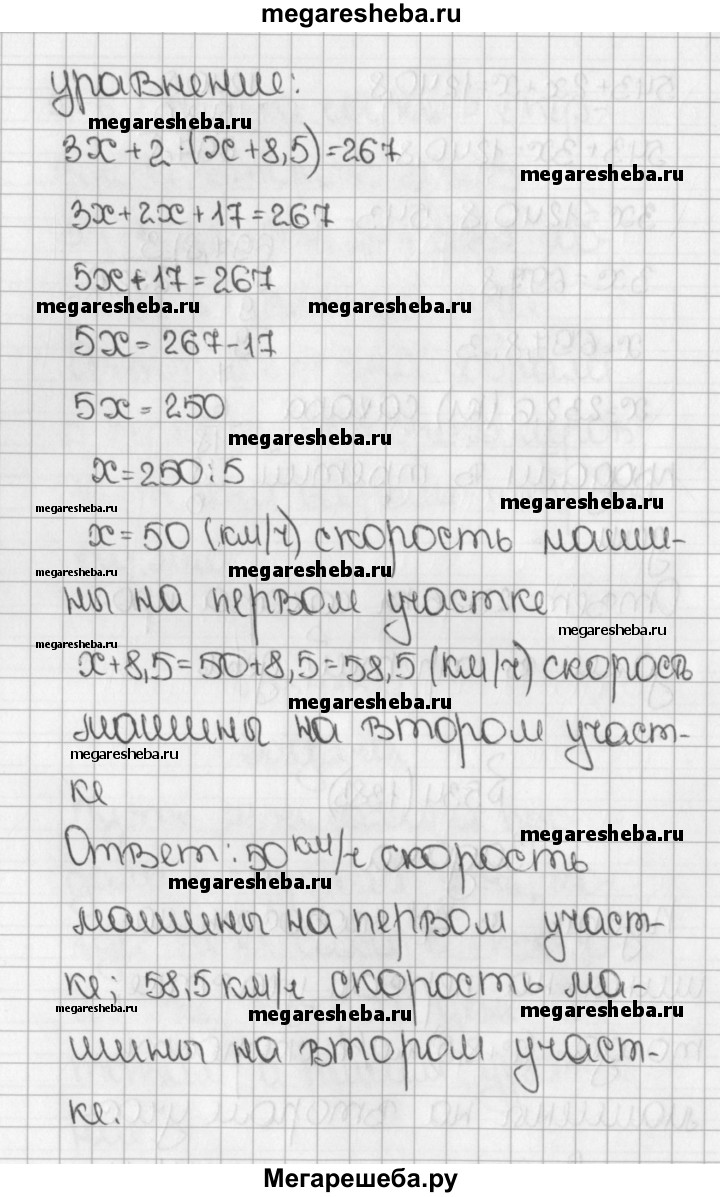 megaresheba.ru
уравнение:
megaresheba.ru
3x+2·(x+8,5)=267
megaresheba.ru
3x+2x+17=267
5x+17=267
megaresheba.ru megaresheba.ru
5x=267-17
5x=250
megaresheba.ru
x=250:5
megaresheba.ru megaresheba.ru
x=50 (км/ч) скорость маши-
megaresheba.ru megaresheba.ru
ны на первом участке
megaresheba.ru
megaresheba.ru
x+8,5=50+8,5=58,5 (км/ч) скорость
megaresheba.ru
машины на втором участ-
megaresheba.ru
ке
megaresheba.ru
Ответ: 50 км/ч скорость
megaresheba.ru
машины на первом участ-
ке; 58,5 км/ч скорость ма-
megaresheba.ru megaresheba.ru megaresheba.ru
шины на втором участ-
ке.
Мегарешеба.ру